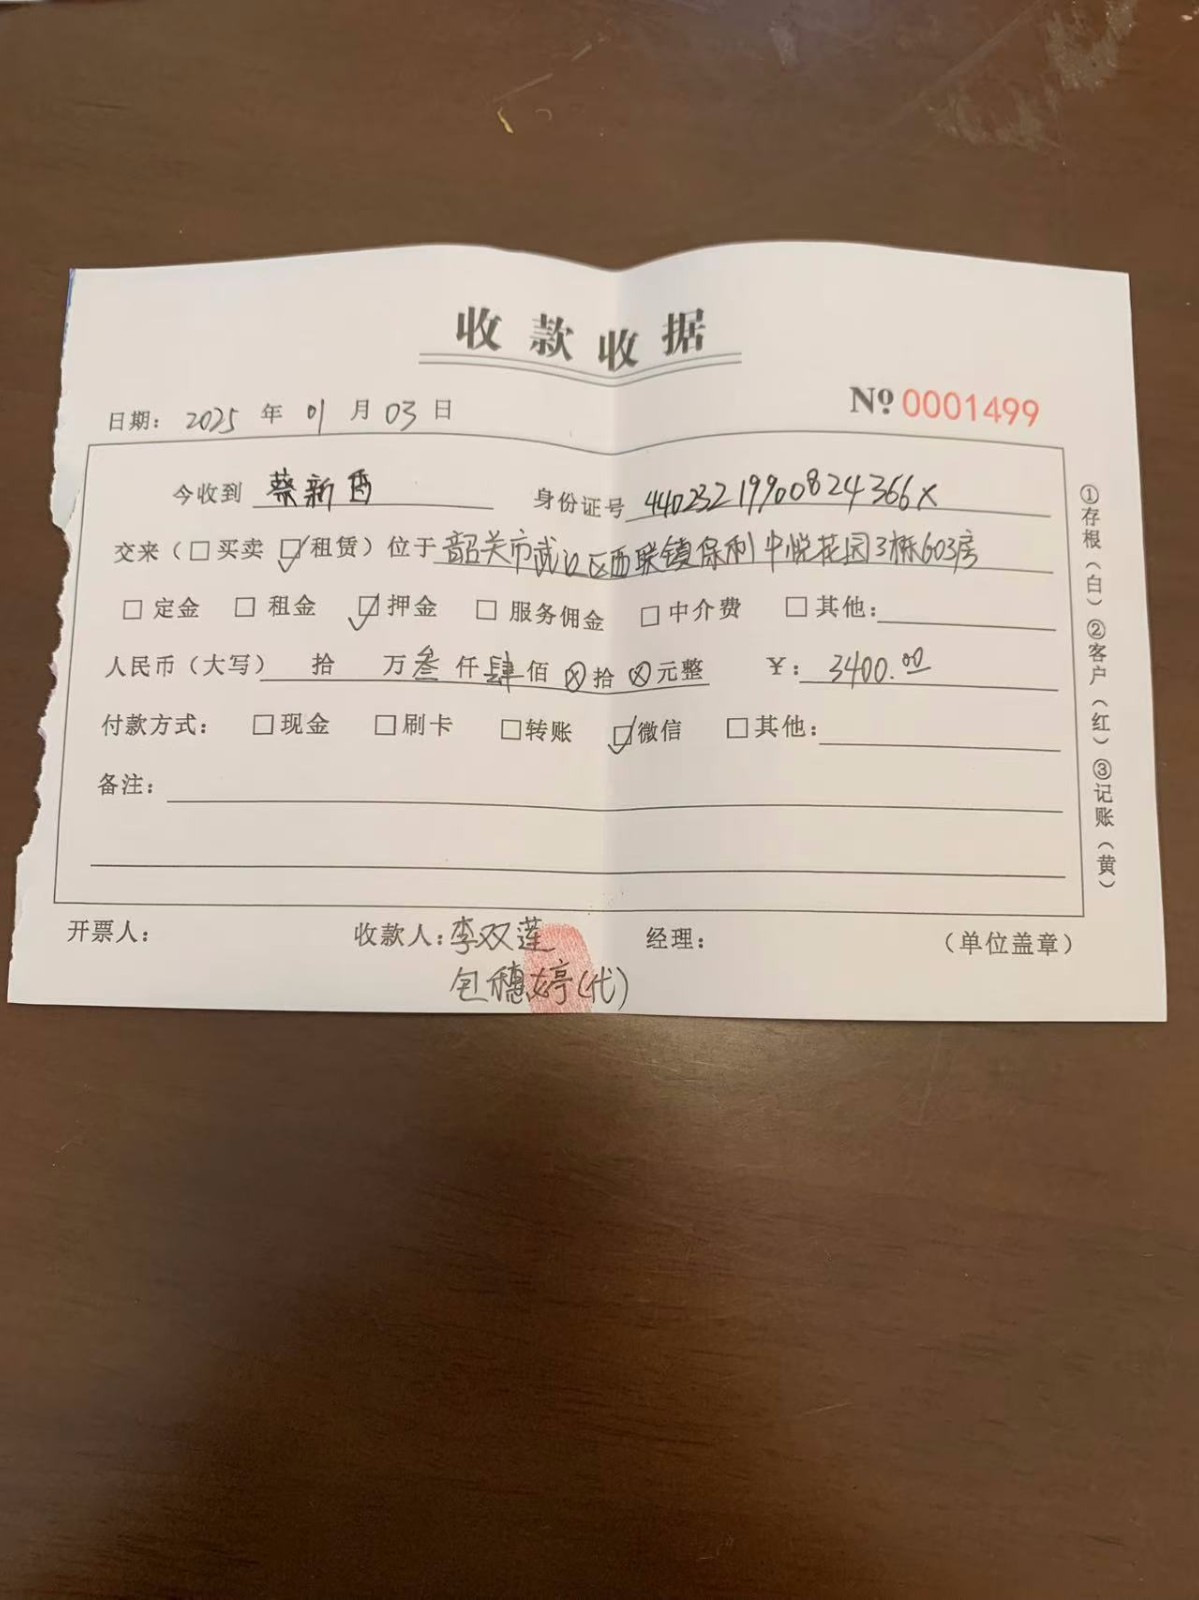 收款收据
日期: 2025 年 01 月 03 日
№ 0001499
今收到 蔡新酉 身份证号 44023219900824366X
交来（□买卖 ☑租赁）位于 韶关市武江区西联镇保利中悦花园3栋603房
□ 定金 □ 租金 ☑ 押金 □ 服务佣金 □ 中介费 □ 其他:
人民币（大写） 拾 万 叁 仟 肆 佰 ⊗ 拾 ⊗ 元整 ¥: 3400.00
付款方式: □现金 □刷卡 □转账 ☑微信 □其他:
备注:
开票人: 收款人: 李双莲 经理: （单位盖章）
包穗婷(代)
①存根（白）②客户（红）③记账（黄）